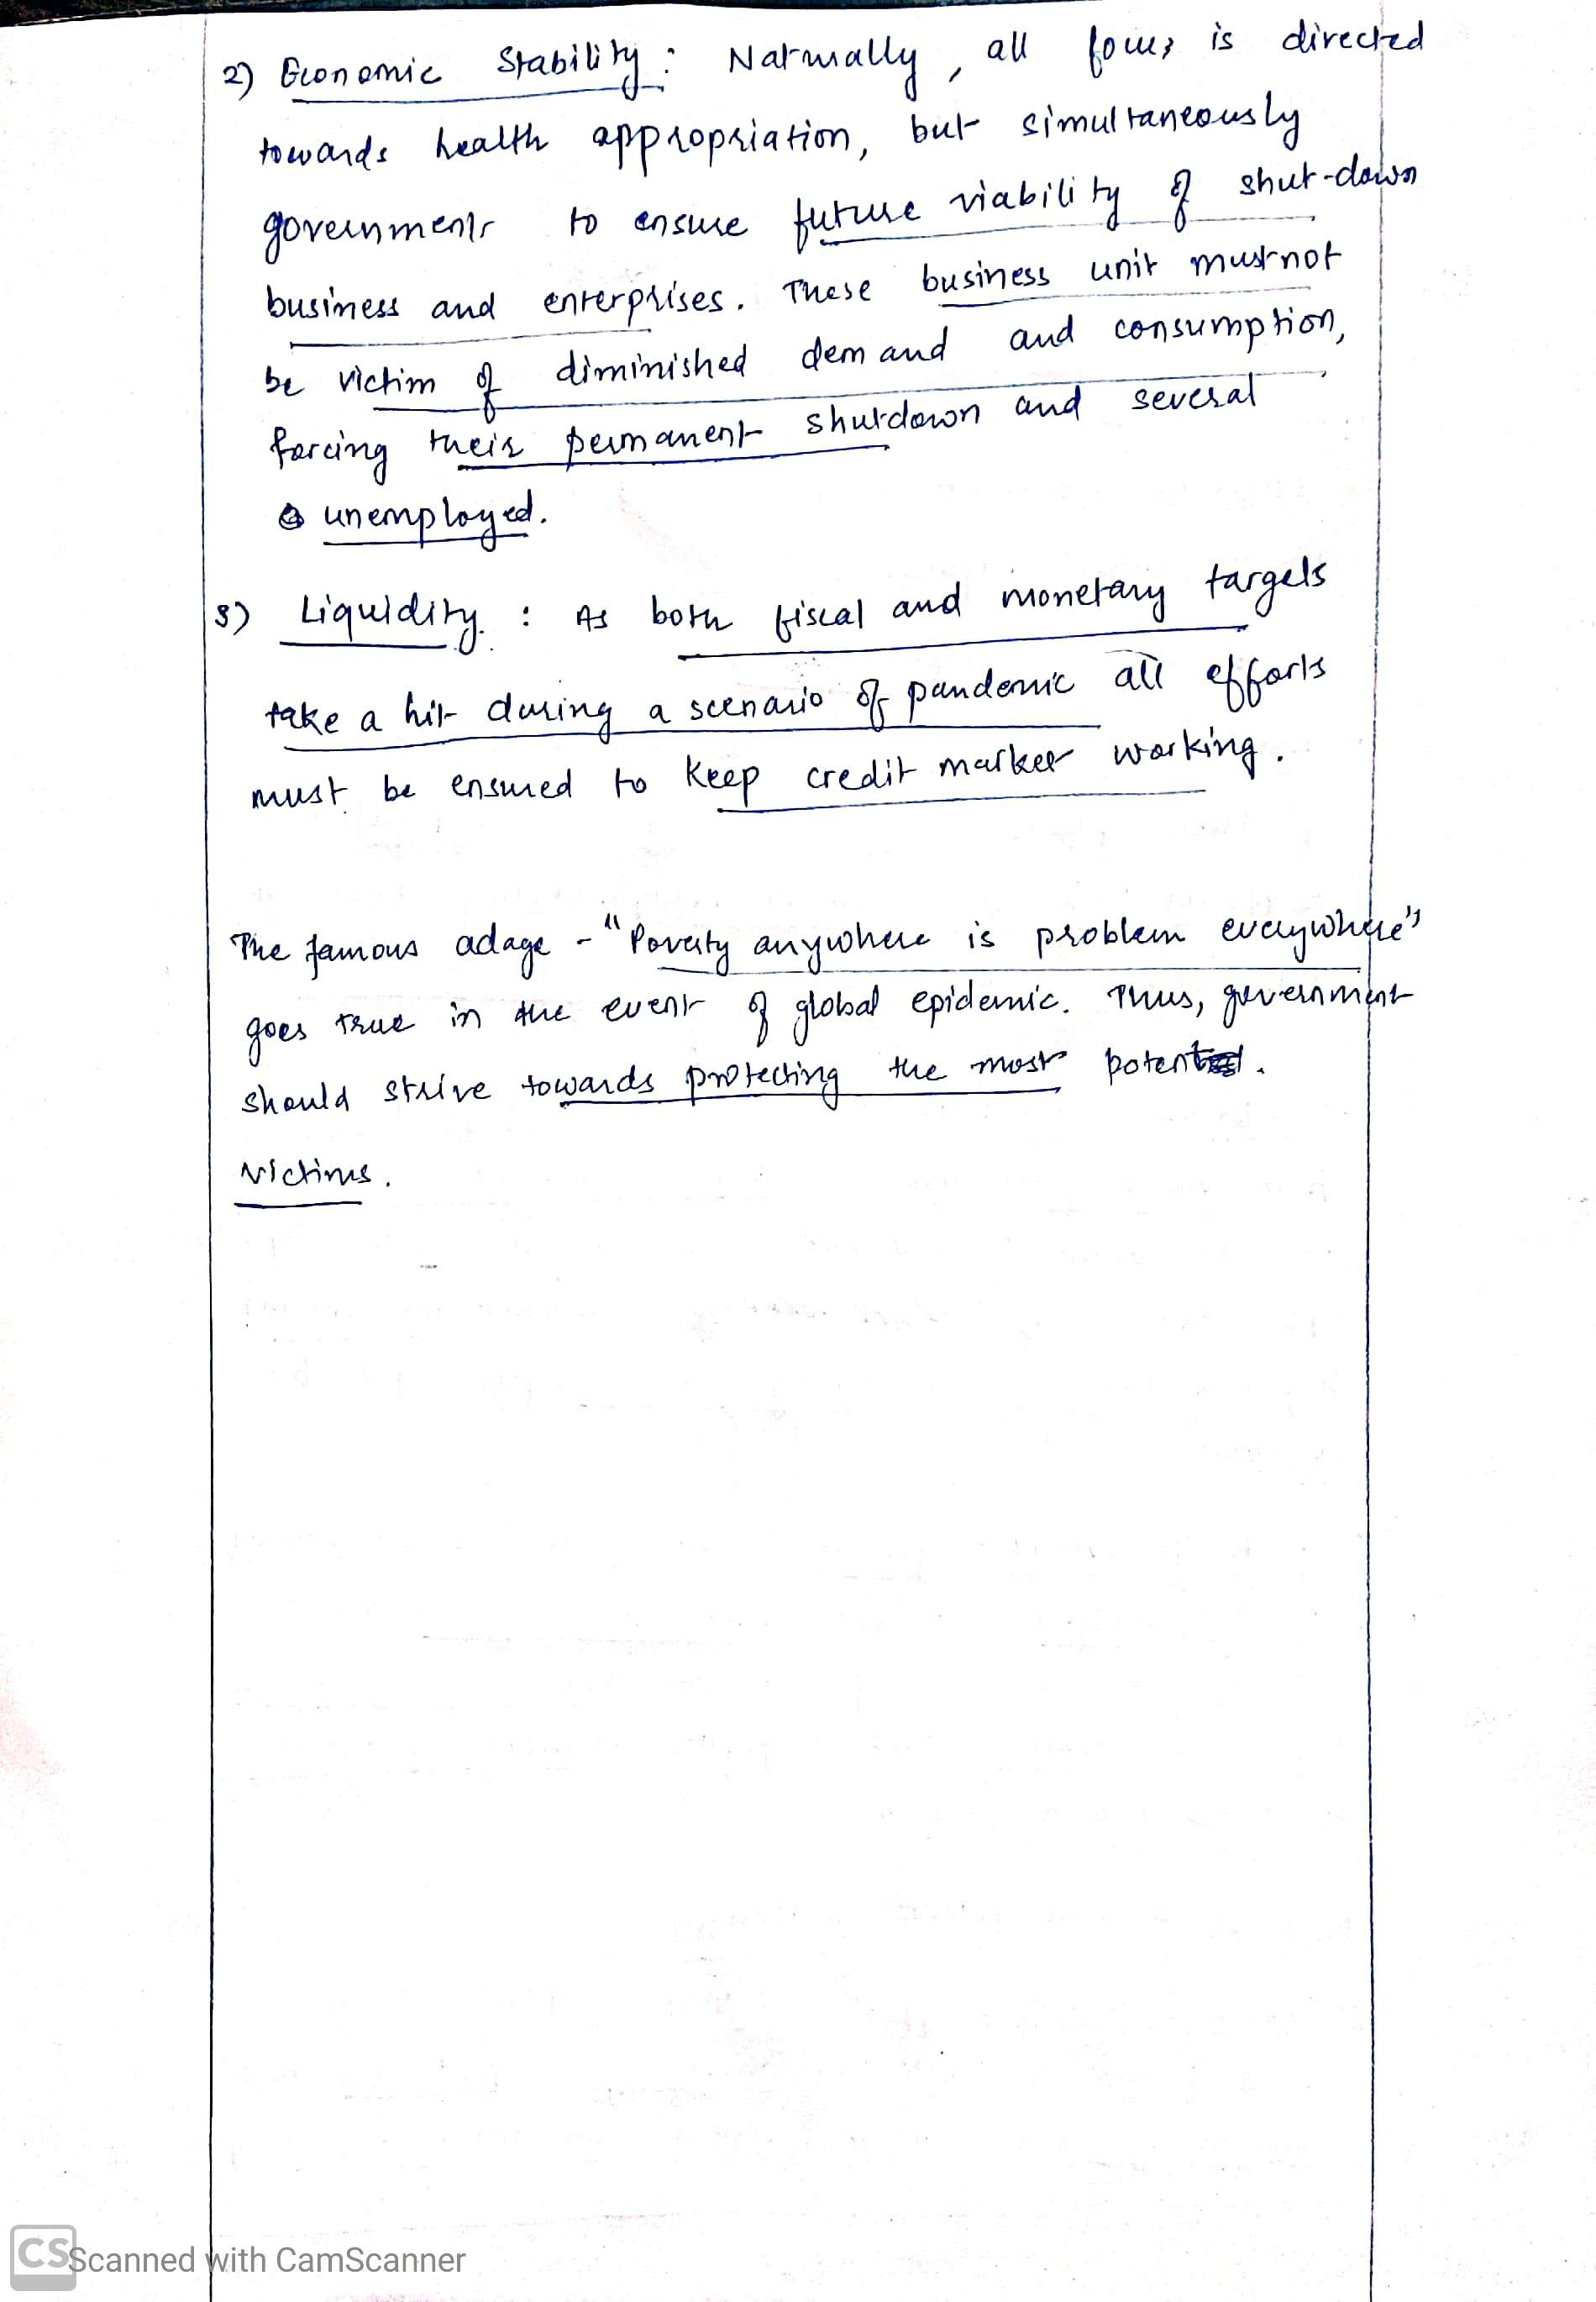 2) Economic Stability : Naturally, all focus is directed
towards health appropriation, but simultaneously
governments to ensure future viability of shut-down
business and enterprises. These business unit must not
be victim of diminished demand and consumption,
forcing their permanent shutdown and several
unemployed.
3) Liquidity : As both fiscal and monetary targets
take a hit during a scenario of pandemic all efforts
must be ensured to keep credit market working.
The famous adage - "Poverty anywhere is problem everywhere"
goes true in the event of global epidemic. Thus, government
should strive towards protecting the most potent.
victims.
CS Scanned with CamScanner